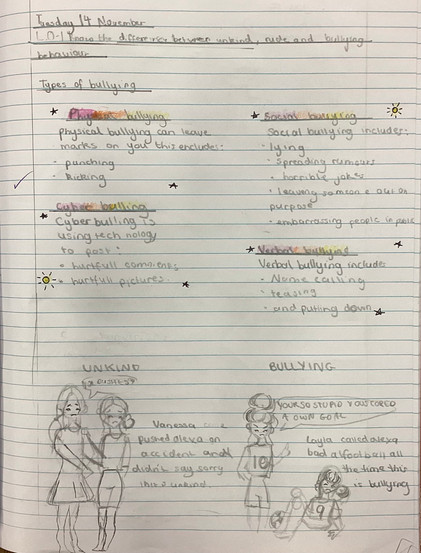 Tuesday 14 November
L.O-I know the difference between unkind, rude and bullying
behaviour
Types of bullying
Physical bullying
physical bullying can leave
marks on you this encludes:
punching
kicking
Cyber bulling
Cyber bulling is
using technology
to post:
hurtfull comments
hurtfull pictures
Social bullying
Social bullying includes:
lying
spreading rumours
horrible jokes
leaving someone out on
purpose
embarrassing people in
Verbal bullying
Verbal bullying include
Name calling
teasing
and putting down
UNKIND
Vanessa
pushed alexa on
accident and
didn't say sorry
this is unkind
BULLYING
YOUR SO STUPID YOU SCORED
A OWN GOAL
10
Layla called alexa
bad at football all
the time this
is bullying
9